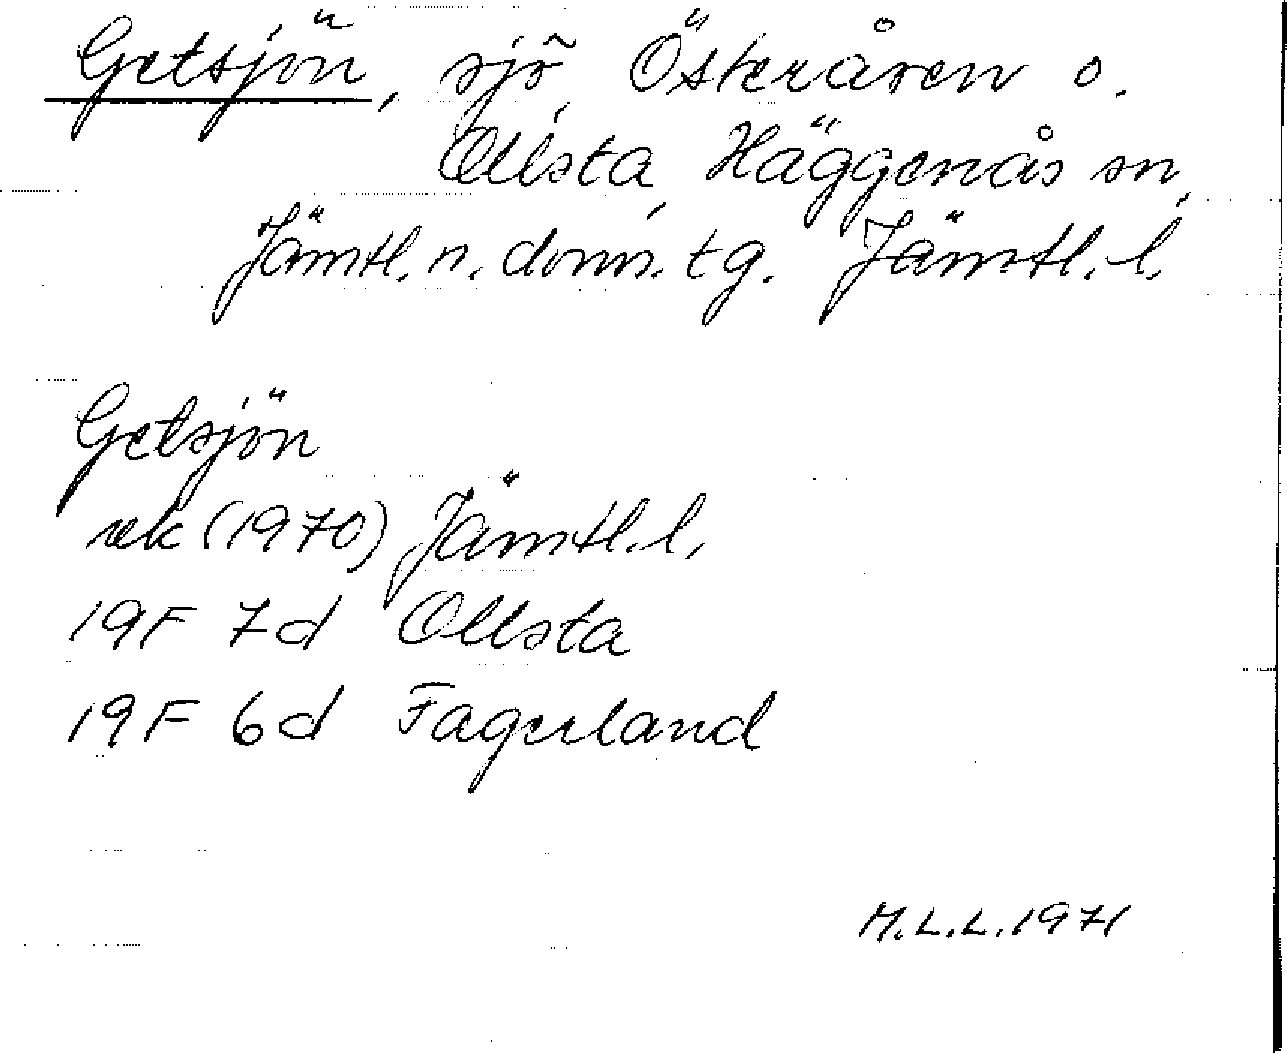 Getsjön, sjö, Österåsen o.
Ollsta, Häggenås sn,
Jämtl. n. doms. tg. Jämtl. l.
Getsjön
ek (1970) Jämtl. l.
19F 7d Ollsta
19F 6d Fagerland
M.L.L. 1971